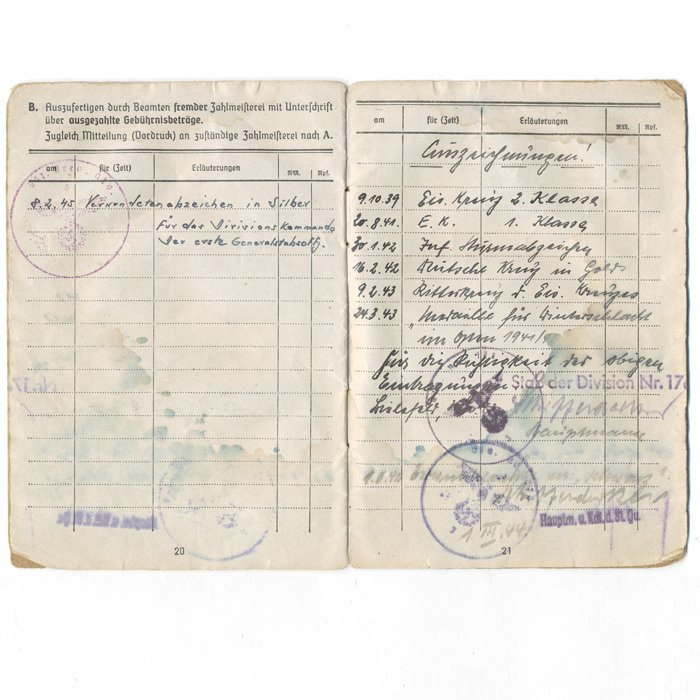 B. Auszufertigen durch Beamten fremder Zahlmeisterei mit Unterschrift
über ausgezahlte Gebührnisbeträge.
Zugleich Mitteilung (Vordruck) an zuständige Zahlmeisterei nach A.
am für (Zeit) Erläuterungen RM. Rpf.
8.2.45 Verwundetenabzeichen in Silber
Für das Divisionskommando
Der erste Generalstabsoffz.
20
am für (Zeit) Erläuterungen RM. Rpf.
Auszeichnungen!
9.10.39 Eis. Kreuz 2. Klasse
20.8.41. E.K. 1. Klasse
30.1.42 Inf. Sturmabzeichen
16.2.42 Deutsche Kreuz in Gold
9.2.43 Ritterkreuz d. Eis. Kreuzes
24.3.43 Medaille für Winterschlacht
im Osten 1941/
Für die Richtigkeit der obigen
Eintragungen
Stab der Division Nr. 176
Bielefeld,
Hauptmann
Hauptm. u. Kdt. d. St. Qu.
1. III. 44
21